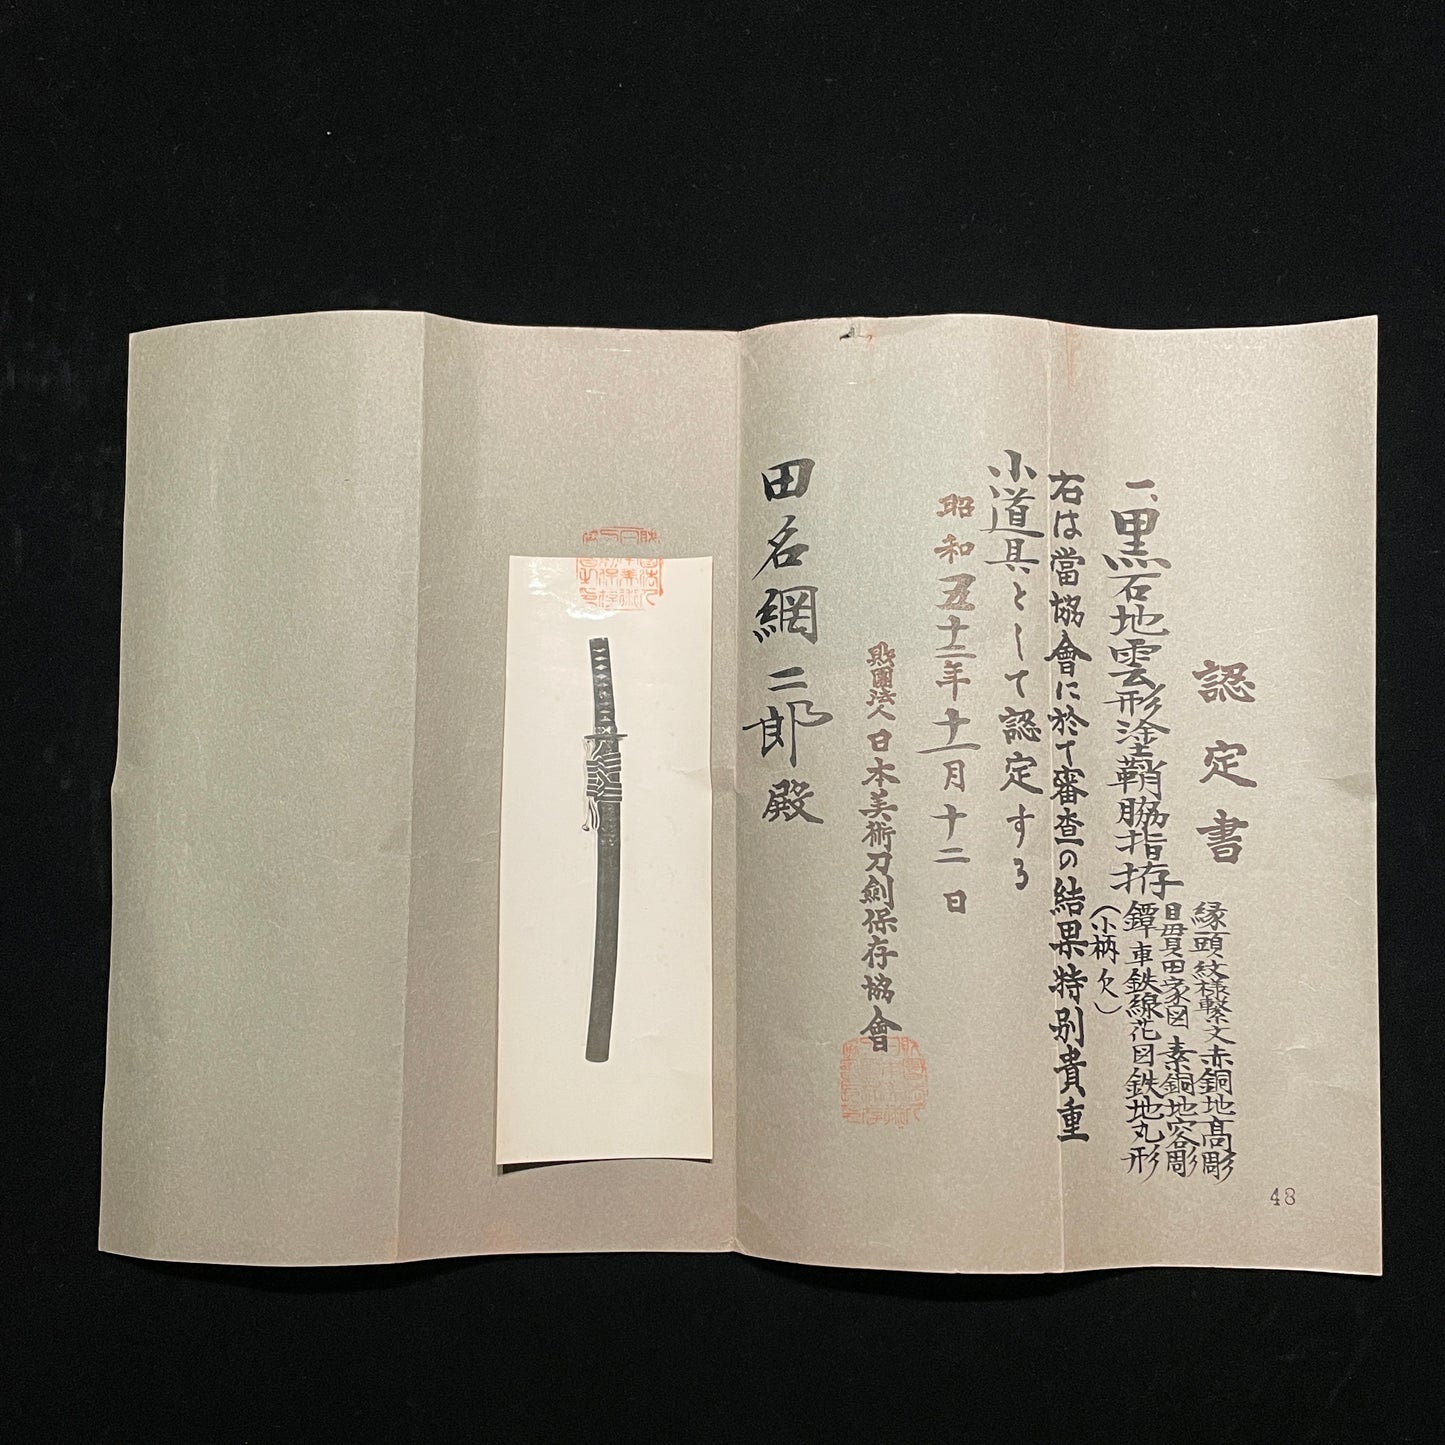 認定書
一、黒石地雲形塗鞘脇指拵
縁頭紋様繋文赤銅地高彫
目貫田家図素銅地容彫
鐔車鉄線花図鉄地丸形
(小柄欠)
右は當協會に於て審査の結果特別貴重
小道具として認定する
昭和五十二年十一月十二日
財團法人日本美術刀劍保存協會
田名網二郎殿
48